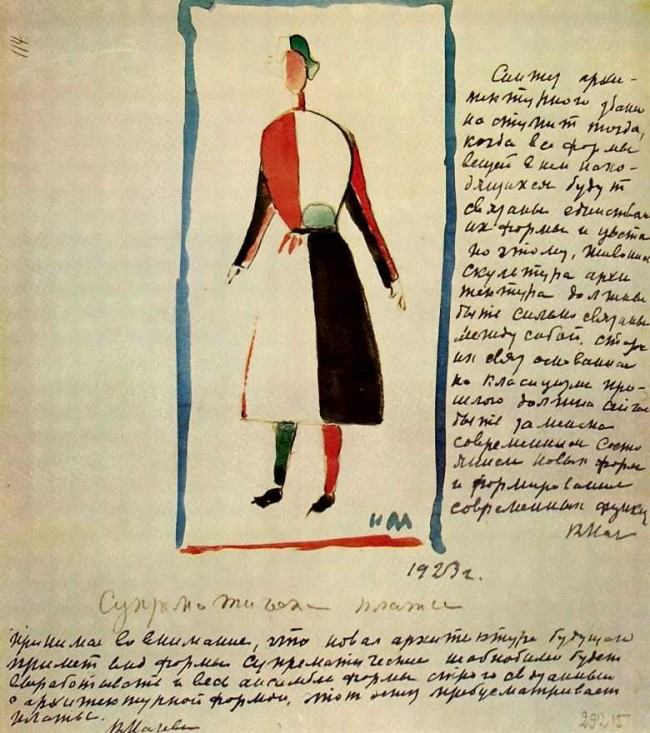 114.
архи-
тектурного здан
наступит тогда,
когда все формы
вещей в нем нахо-
дящихся будут
связаны единством
их формы и цвета
поэтому, живопис
скульптура архи
тектура должны
быть сильно связаны
между собой.
их связ основанная
на про-
шлого должна
быть заменена
современным состо
янием новых форм
и формирование
современных функц
КМал
КМ
1923 г.
Супрематическ платье
Принимая во внимание, что новая архитектура будущего
примет вид формы супрематические необходимо будет
выработать и весь ансамбль формы строго связанный
с архитектурной формой, этот предусматривает
платье.
КМалеви